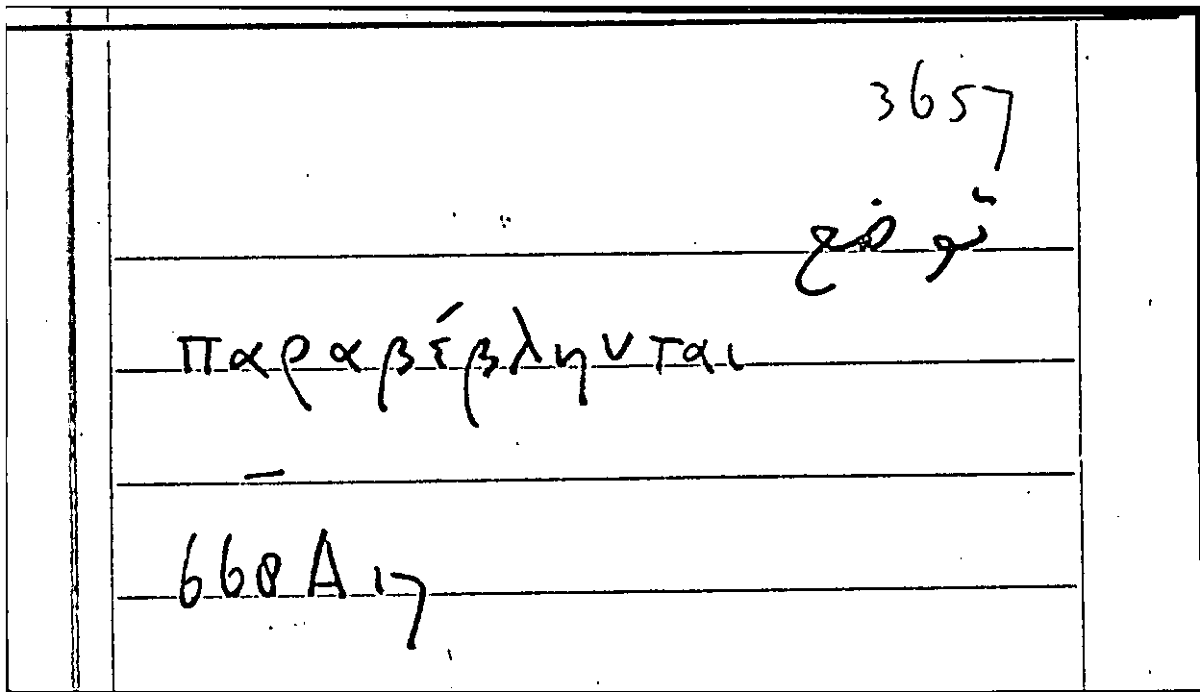 3657
παραβέβληνται
—
668 A 17